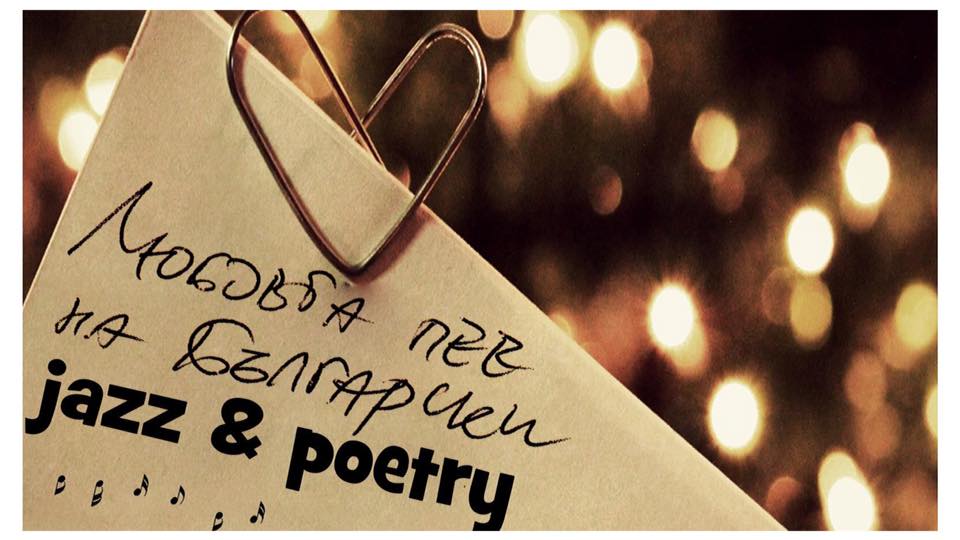 Любовта пее
на Български
jazz & poetry